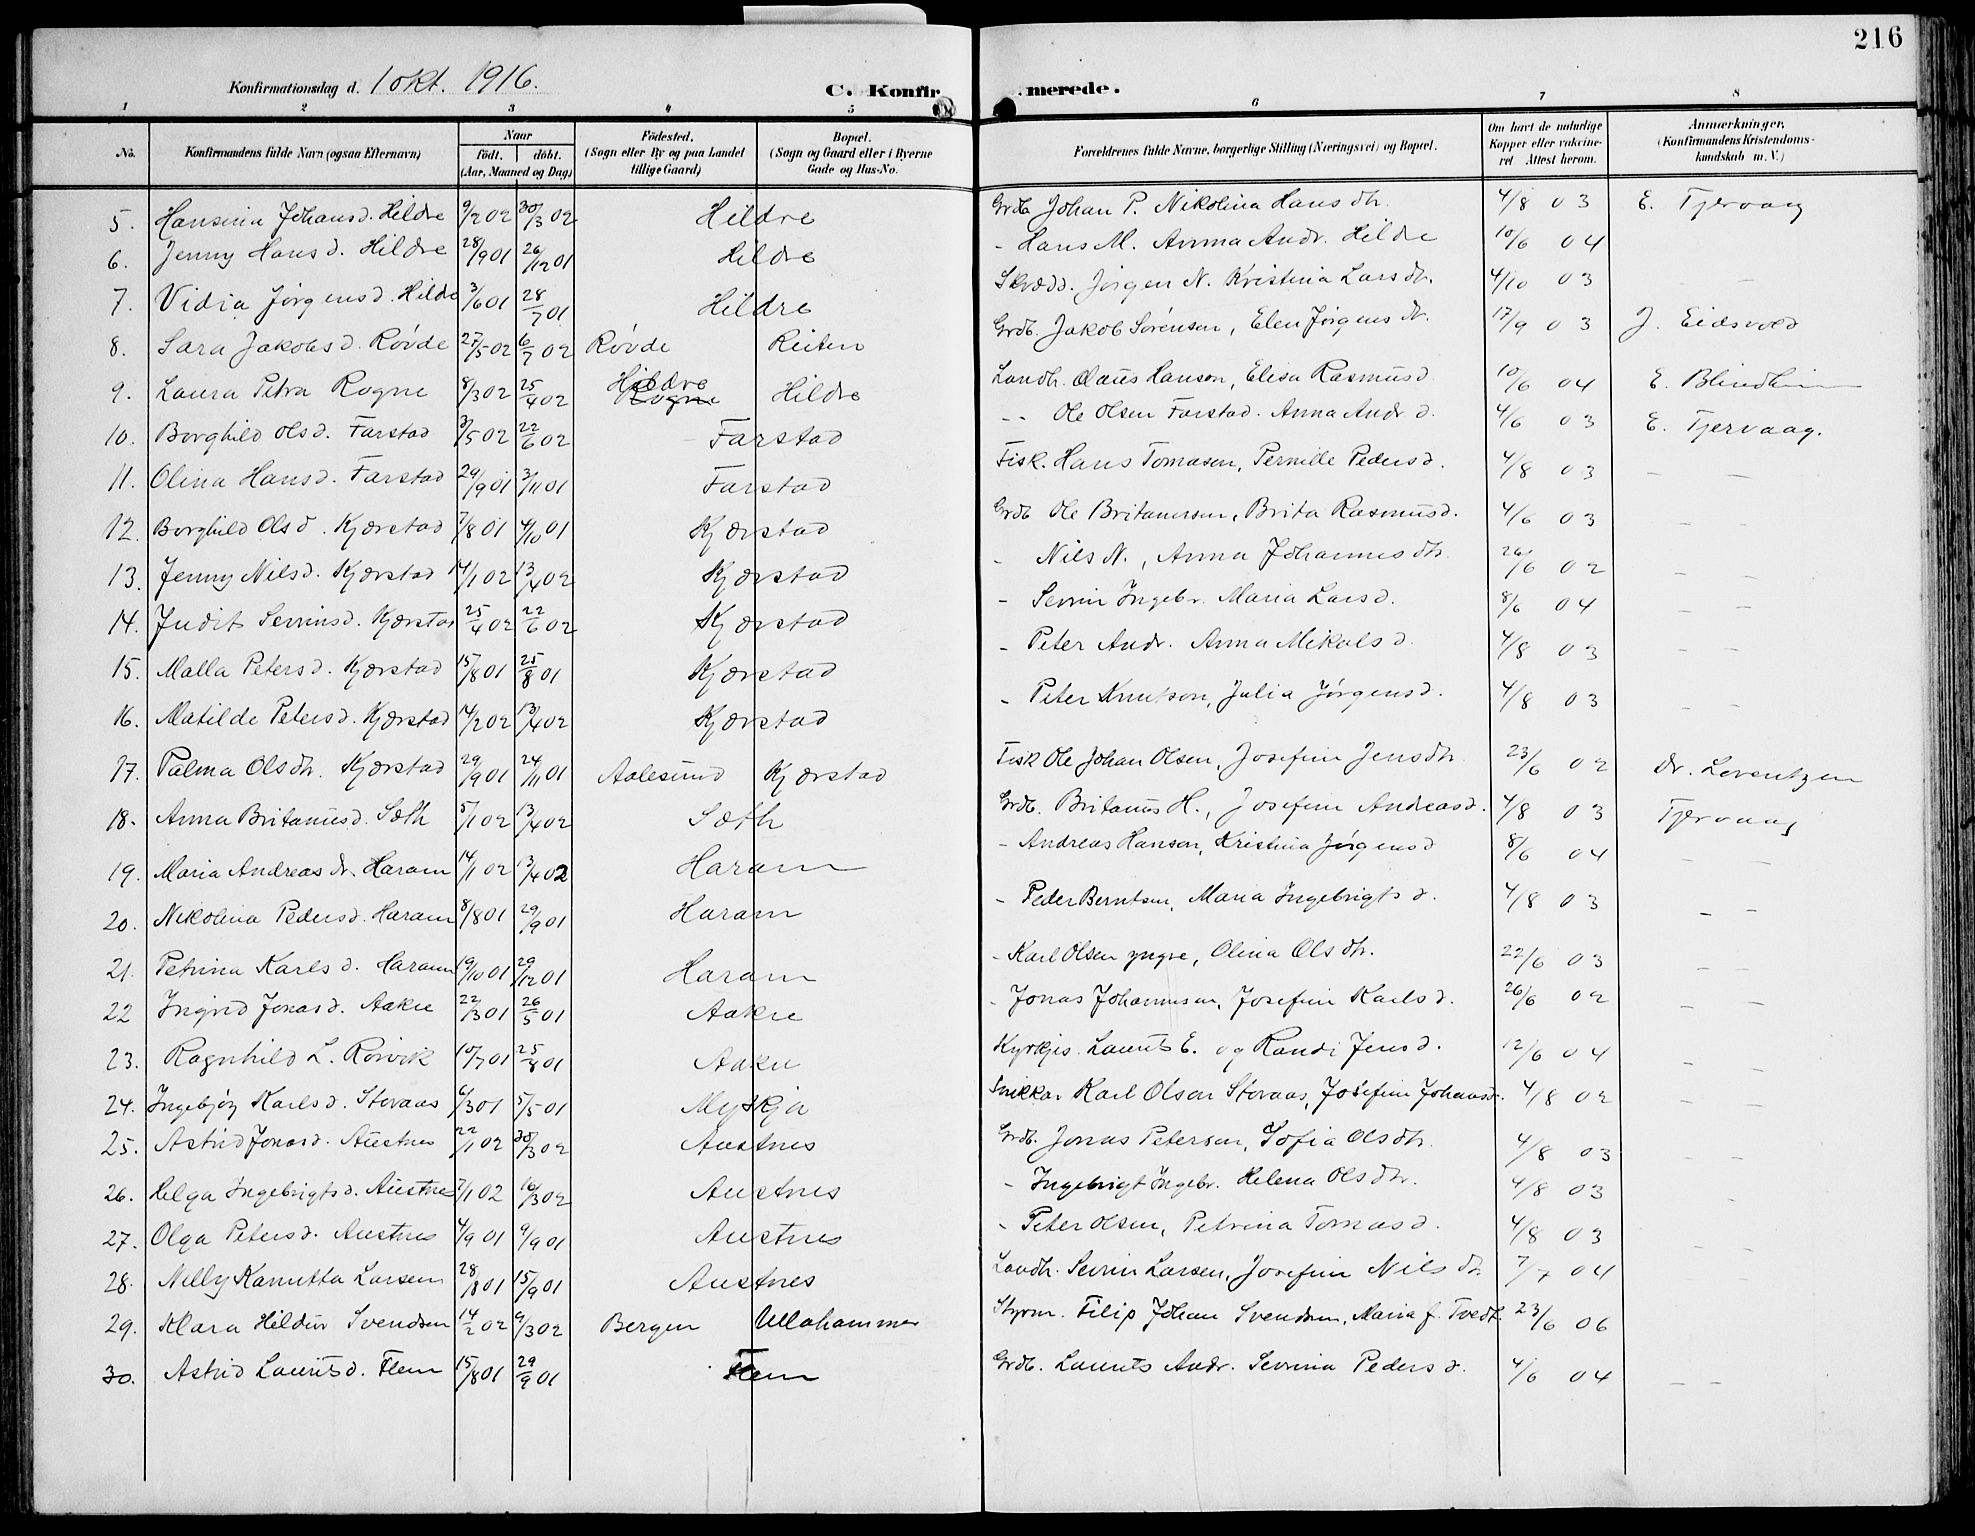 216
Konfirmationsdag d. 1 okt. 1916.
C. Konfir merede.
1 2 3 4 5 6 7 8
No. Konfirmandens fulde Navn (ogsaa Efternavn) Naar födt. döbt. (Aar, Maaned og Dag) Födested. (Sogn eller By og paa Landet tillige Gaard) Bopæl. (Sogn og Gaard eller i Byerne Gade og Hus-No. Forældrenes fulde Navne, borgerlige Stilling (Næringsvei) og Bopæl. Om havt de naturlige Kopper eller vaccineret Attest herom. Anmærkninger. (Konfirmandens Kristendomskundskab m. V.)
5. Hansina Johansd. Hildre 9/2 02 30/3 02 Hildre Grdb. Johan P. Nikolina Hansdtr. 4/8 03 E. Tjervaag
6. Jenny Hansd. Hildre 28/9 01 26/12 01 Hildre - Hans M. Anna Andr. Hildre 10/6 04
7. Vidia Jørgensd. Hildre 3/6 01 28/7 01 Hildre Skrædd. Jørgen N. Kristina Larsdtr. 4/10 03 —
8. Sara Jakobsd. Røvde 27/5 02 6/7 02 Røvde Reiten Grdb. Jakob Sørensen, Elen Jørgensdtr. 17/9 03 J. Eidsvold
9. Laura Petra Rogne 8/3 02 25/4 02 Hildre Rogne Hildre Landh. Claus Hanson, Elisa Rasmusd. 10/6 04 E. Blindheim
10. Borghild Olsd. Farstad 3/5 02 22/6 02 Farstad -- Ole Olsen Farstad. Anna Andr. d. 4/6 03 E. Tjervaag.
11. Olina Hansd. Farstad 29/9 01 3/11 01 Farstad Fisk. Hans Tomasen, Pernille Pedersd. 4/8 03 — —
12. Borghild Olsd. Kjærstad 7/8 01 4/10 01 Kjærstad Grdb. Ole Britanusen, Brita Rasmusd. 4/6 03 — —
13. Jenny Nilsd. Kjærstad 14/1 02 13/4 02 Kjærstad - Nils N., Anna Johannesdtr. 26/6 02 — —
14. Judit Sevrinsd. Kjærstad 25/4 02 22/6 02 Kjærstad - Sevrin Ingebr. Maria Larsd. 8/6 04 — —
15. Malla Petersd. Kjærstad 15/8 01 25/8 01 Kjærstad - Peter Andr. Anna Mikalsd. 4/8 03 — —
16. Matilde Petersd. Kjærstad 14/2 02 13/4 02 Kjærstad - Peter Knutson, Julia Jørgensd. 4/8 03 — —
17. Palma Olsdtr. Kjærstad 29/9 01 24/11 01 Aalesund Kjærstad Fisk. Ole Johan Olsen, Josefine Jensdtr. 23/6 02 Dr. Lorentzen
18. Anna Britanusd. Sæth 5/1 02 13/4 02 Sæth Grdb. Britanus H., Josefine Andreasd. 4/8 03 Tjervaag
19. Maria Andreasdtr. Haram 14/1 02 13/4 02 Haram - Andreas Hanson, Kristina Jørgensd 8/6 04 — —
20. Nikolina Pedersd. Haram 8/8 01 29/9 01 Haram - Peder Berntsen, Maria Ingebrigtsd. 4/8 03 — —
21. Petrina Karlsd. Haram 19/10 01 29/12 01 Haram - Karl Olsen yngre, Olina Olsdtr. 22/6 03 — —
22 Ingrid Jonasd. Aakre 22/3 01 26/5 01 Aakre - Jonas Johannesen, Josefine Karlsd. 26/6 02 — —
23. Ragnhild L. Rørvik 10/7 01 25/8 01 Aakre Kyrkjes. Laurits E. og Randi Jensd. 12/6 04 — —
24. Ingebjør Karlsd. Storaas 6/3 01 5/5 01 Myskja Snikkar Karl Olson Storaas, Josefine Johansd. 4/8 02 — —
25. Astrid Jonasd. Austnes 22/1 02 30/3 02 Austnes Grdb. Jonas Petersen, Sofia Olsdtr. 4/8 03 — —
26. Helga Ingebrigtsd. Austnes 7/1 02 16/3 02 Austnes - Ingebrigt Ingebr. Helena Olsdtr. 4/8 03 —
27. Olga Petersd. Austnes 4/9 01 9/9 01 Austnes - Peter Olsen, Petrina Tomasd. 4/8 03 — —
28. Nelly Kanutta Larsen 28/8 01 15/9 01 Austnes Landh. Sevrin Larsen, Josefine Nilsdtr 7/7 04 — —
29. Klara Hildur Svendsen 14/2 02 9/3 02 Bergen Ullahammer Styrm. Filip Johan Svendsen, Maria f. Tvedt. 23/6 06
30. Astrid Lauritsd. Flem 15/8 01 29/9 01 Flem Grdb. Laurits Andr. Sevrina Pedersd. 4/6 04 — —